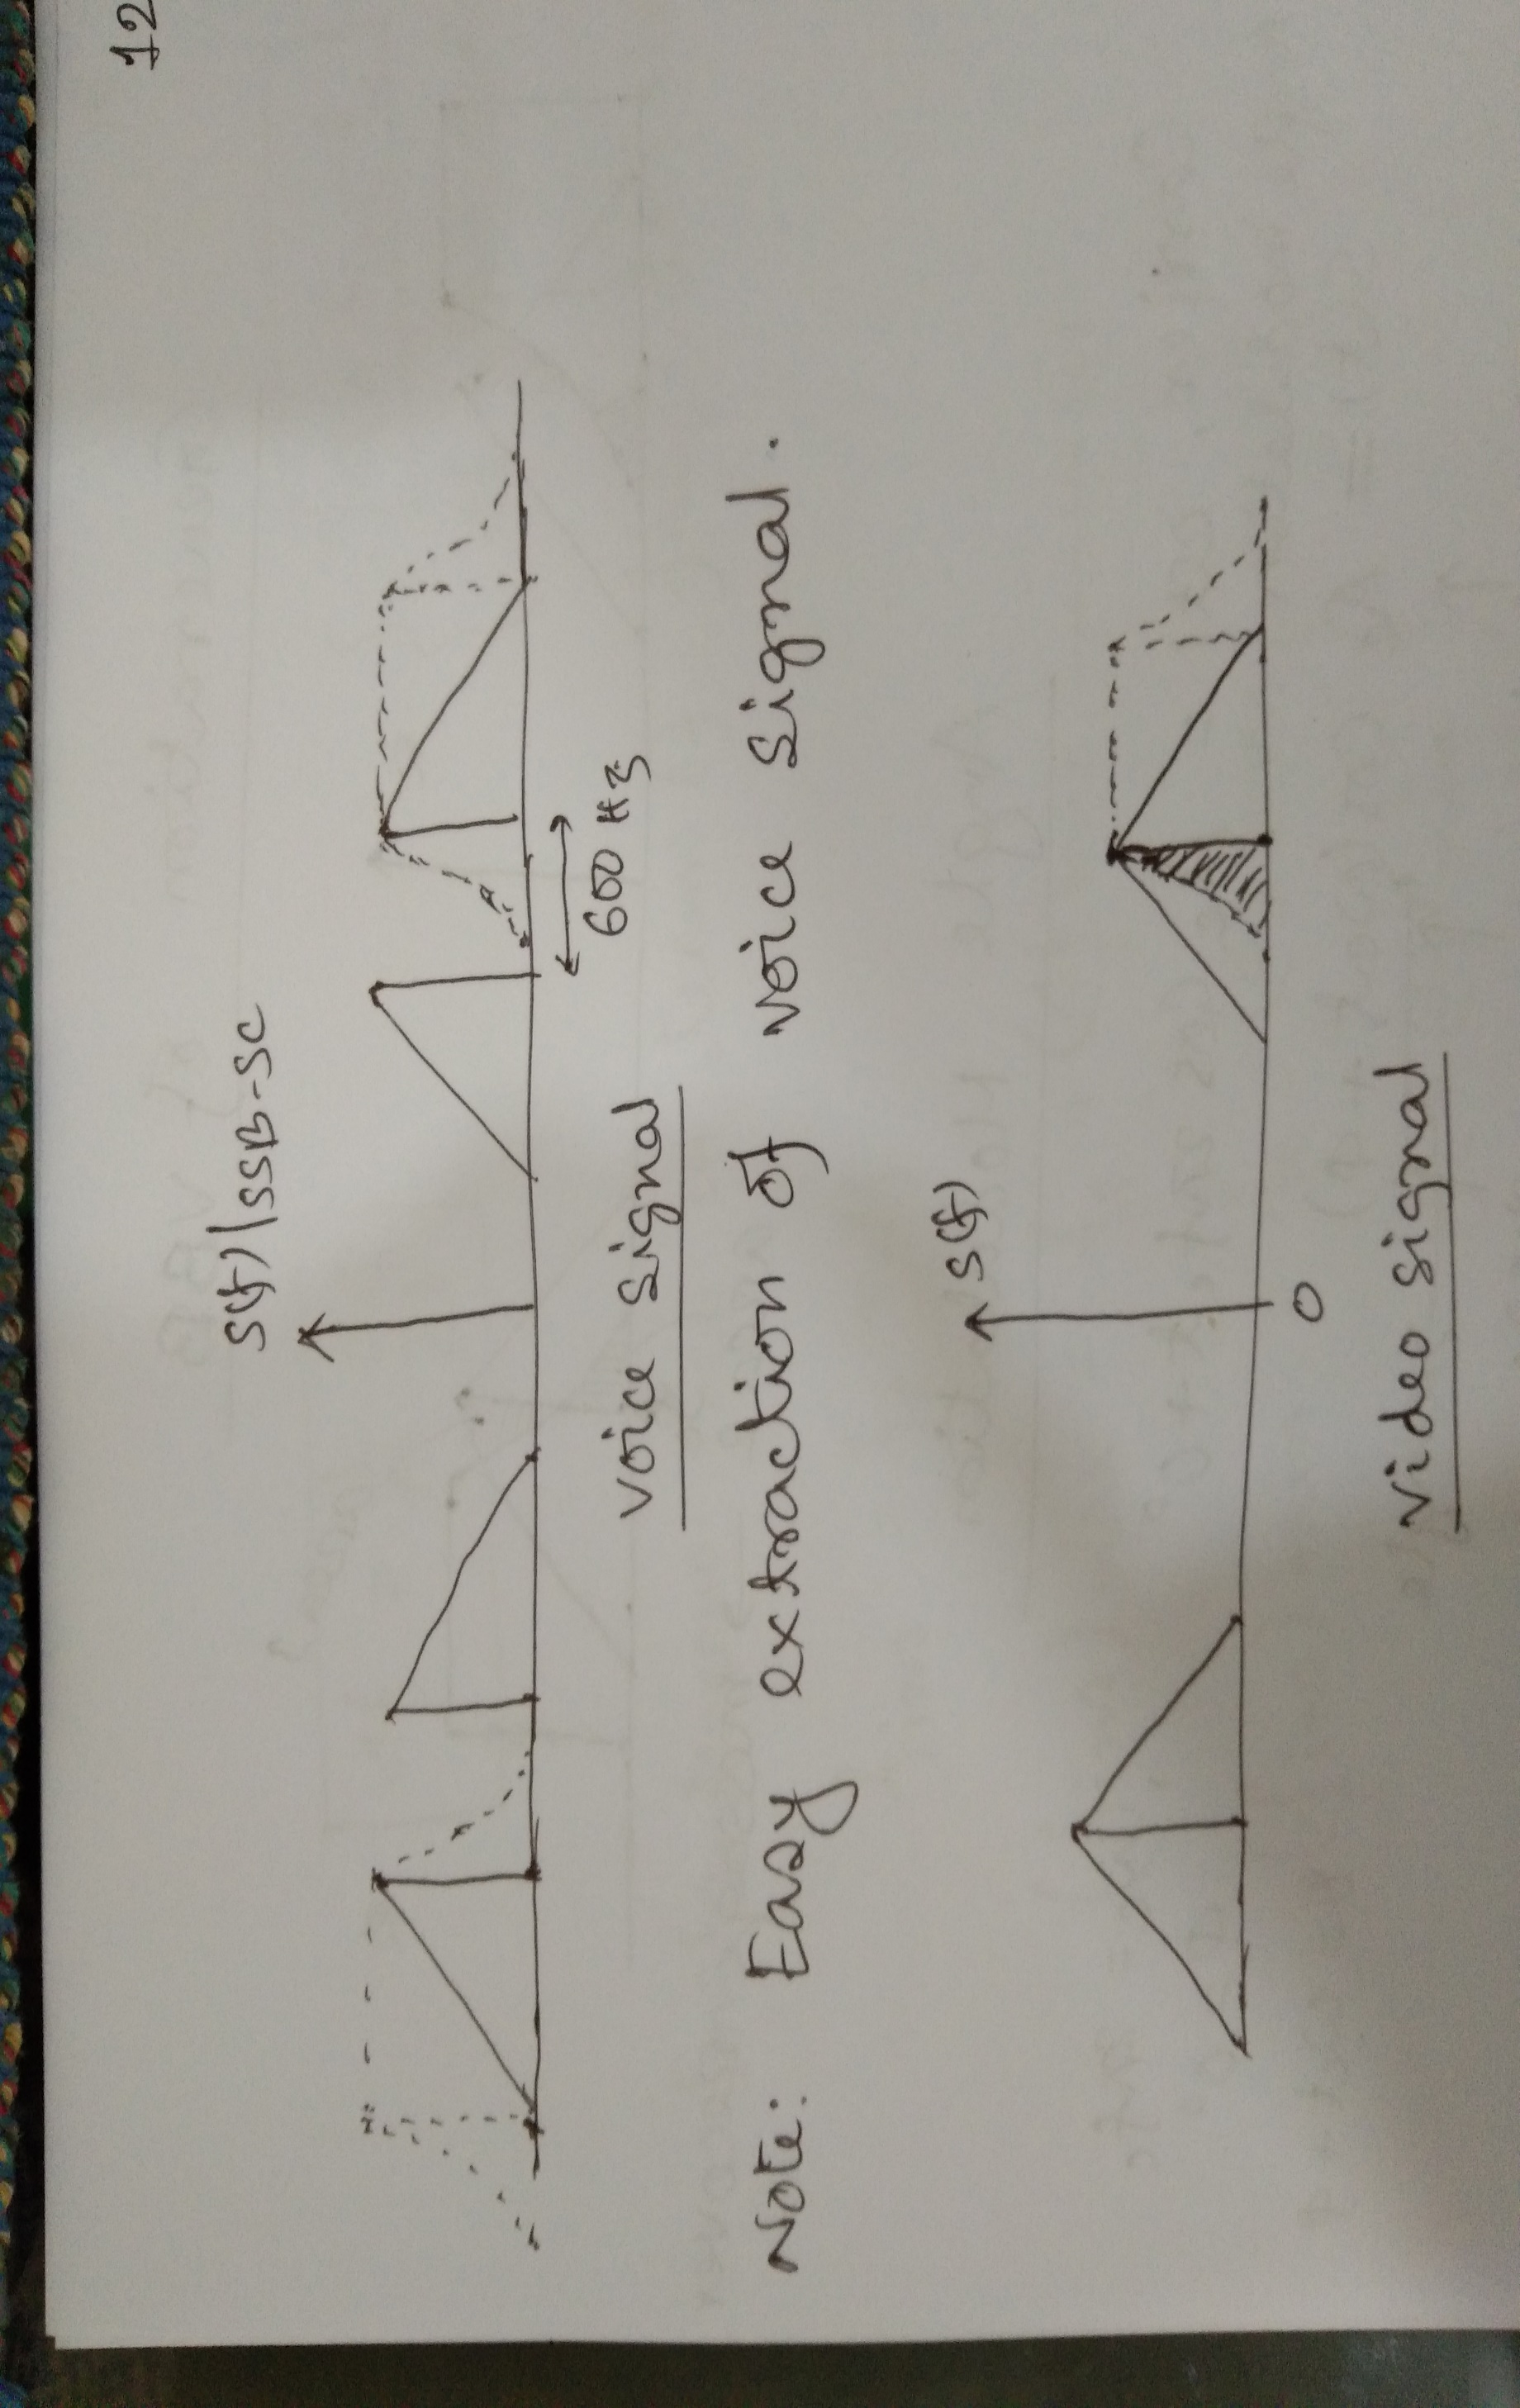 12
S(f)|SSB-SC
600 Hz
voice signal
Note: Easy extraction of voice signal.
S(f)
0
video signal